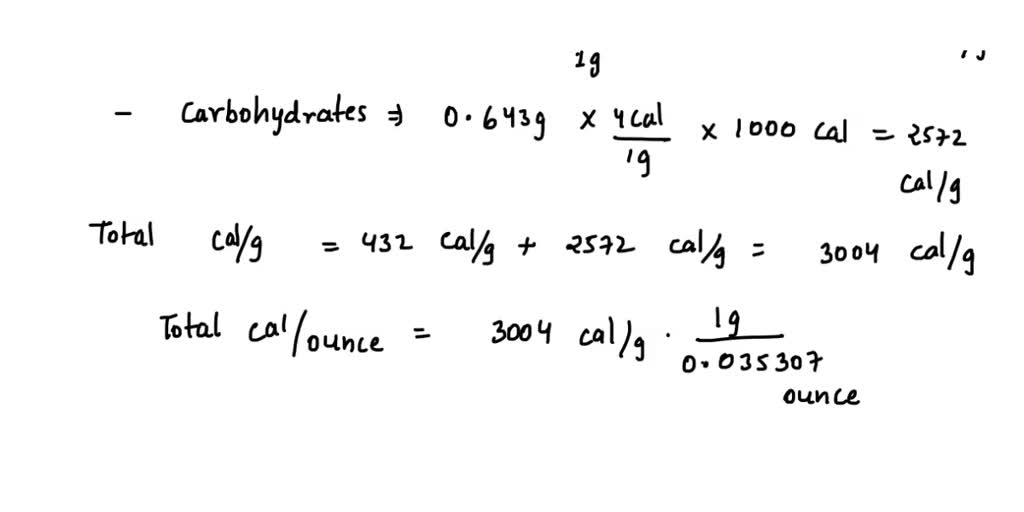 1g
- Carbohydrates ⇒ 0.643g × 4cal/1g × 1000 cal = 2572
cal/g
Total cal/g = 432 cal/g + 2572 cal/g = 3004 cal/g
Total cal/ounce = 3004 cal/g · 1g/0.035307
ounce